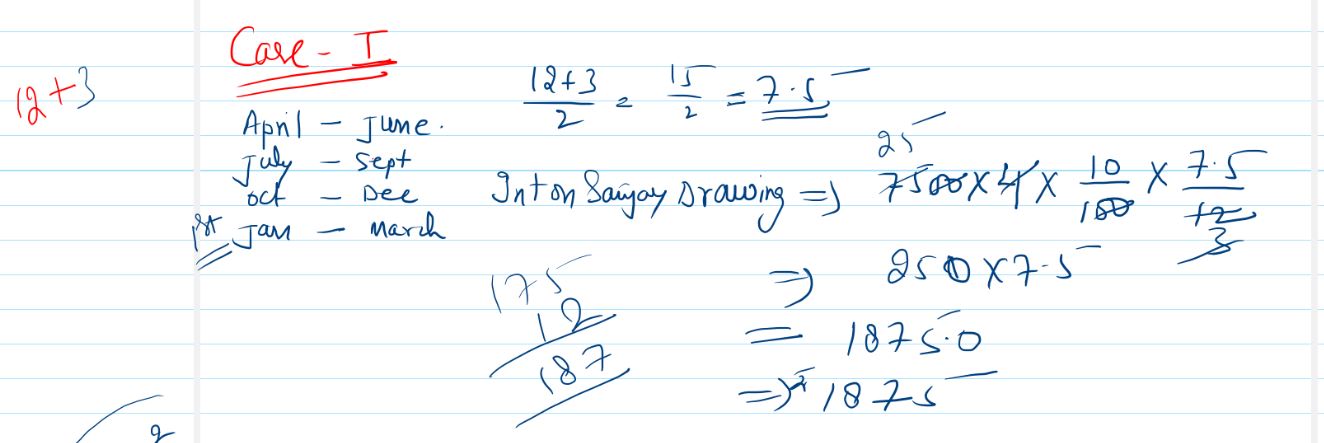 Case - I
12+3
12+3/2 = 15/2 = 7.5
April - June.
July - Sept
Oct - Dec
1st Jan - March
25
Int on Sanjay Drawing => 7500 X 4 X 10/100 X 7.5/12
3
=> 250 X 7.5
175
12
187
= 1875.0
=> 1875
2